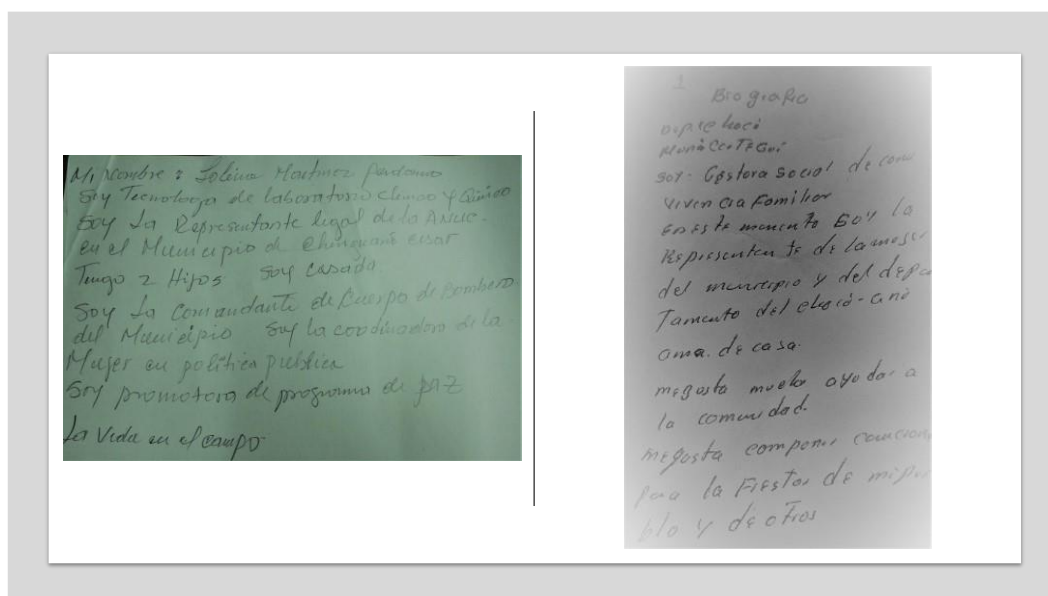 Mi Nombre : Martinez
Soy Tecnologa de laboratorio clinico y Quimico
Soy La Representante legal de la ANUC.
en el Municipio de cesar
Tengo 2 Hijos Soy Casada
Soy La Comandante de Cuerpo de Bombero
del Municipio Soy la coordinadora de la
Mujer en politica publica
Soy promotora de programa de paz
La Vida en el campo
1
Biografia
Soy: Gestora Social de conv
Vivencia Familiar
En este momento Soy la
Representente de la
del municipio y del depa
Tamento del
ama. de casa.
megusta mucho ayudar a
la comunidad.
megusta componer
para la Fiestas de mi pue
blo y de otros